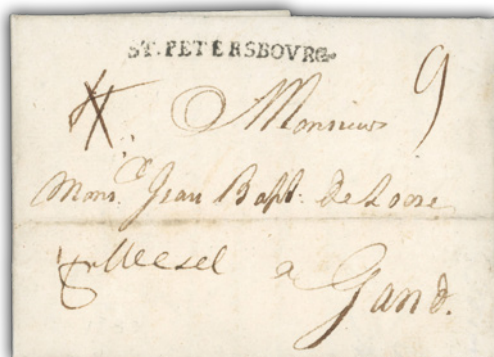 ST. PETERSBOVRG
Monsieur 9
Mons.r Jean Bapt: De Loose
Wesel a
Gand.